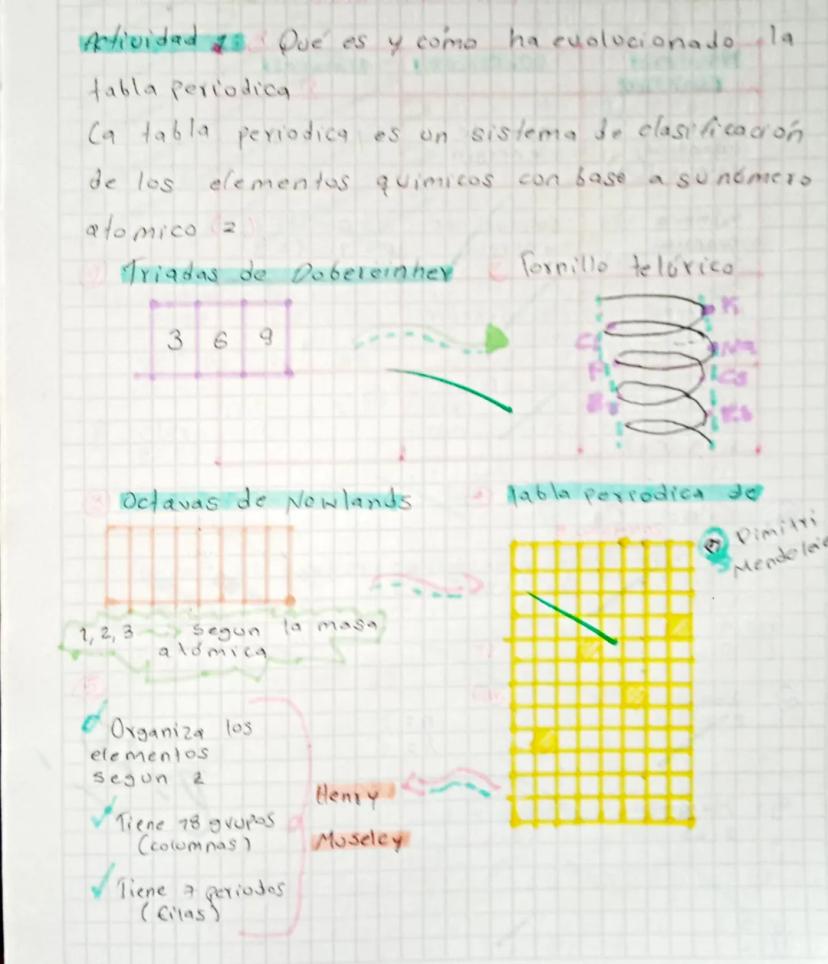 Actividad 1: Que es y cómo ha evolucionado la
tabla periodica
La tabla periodica es un sistema de clasificación
de los elementos quimicos con base a su número
atomico (z)
1 Triadas de Dobereinher
3 6 9
2 Tornillo telúrico
K
Na
Cs
Rb
3 Octavas de Newlands
1, 2, 3 segun la masa
atómica
4 tabla periodica de
Dimitri
5
Organiza los
elementos
segun z
Tiene 18 grupos
(columnas)
Tiene 7 periodos
(filas)
Henry
Moseley